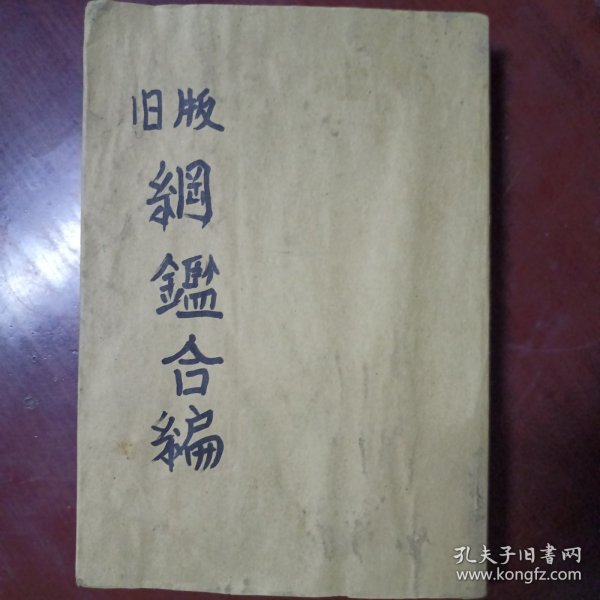 旧版
綱鑑合編
孔夫子旧書网
www.kongfz.com